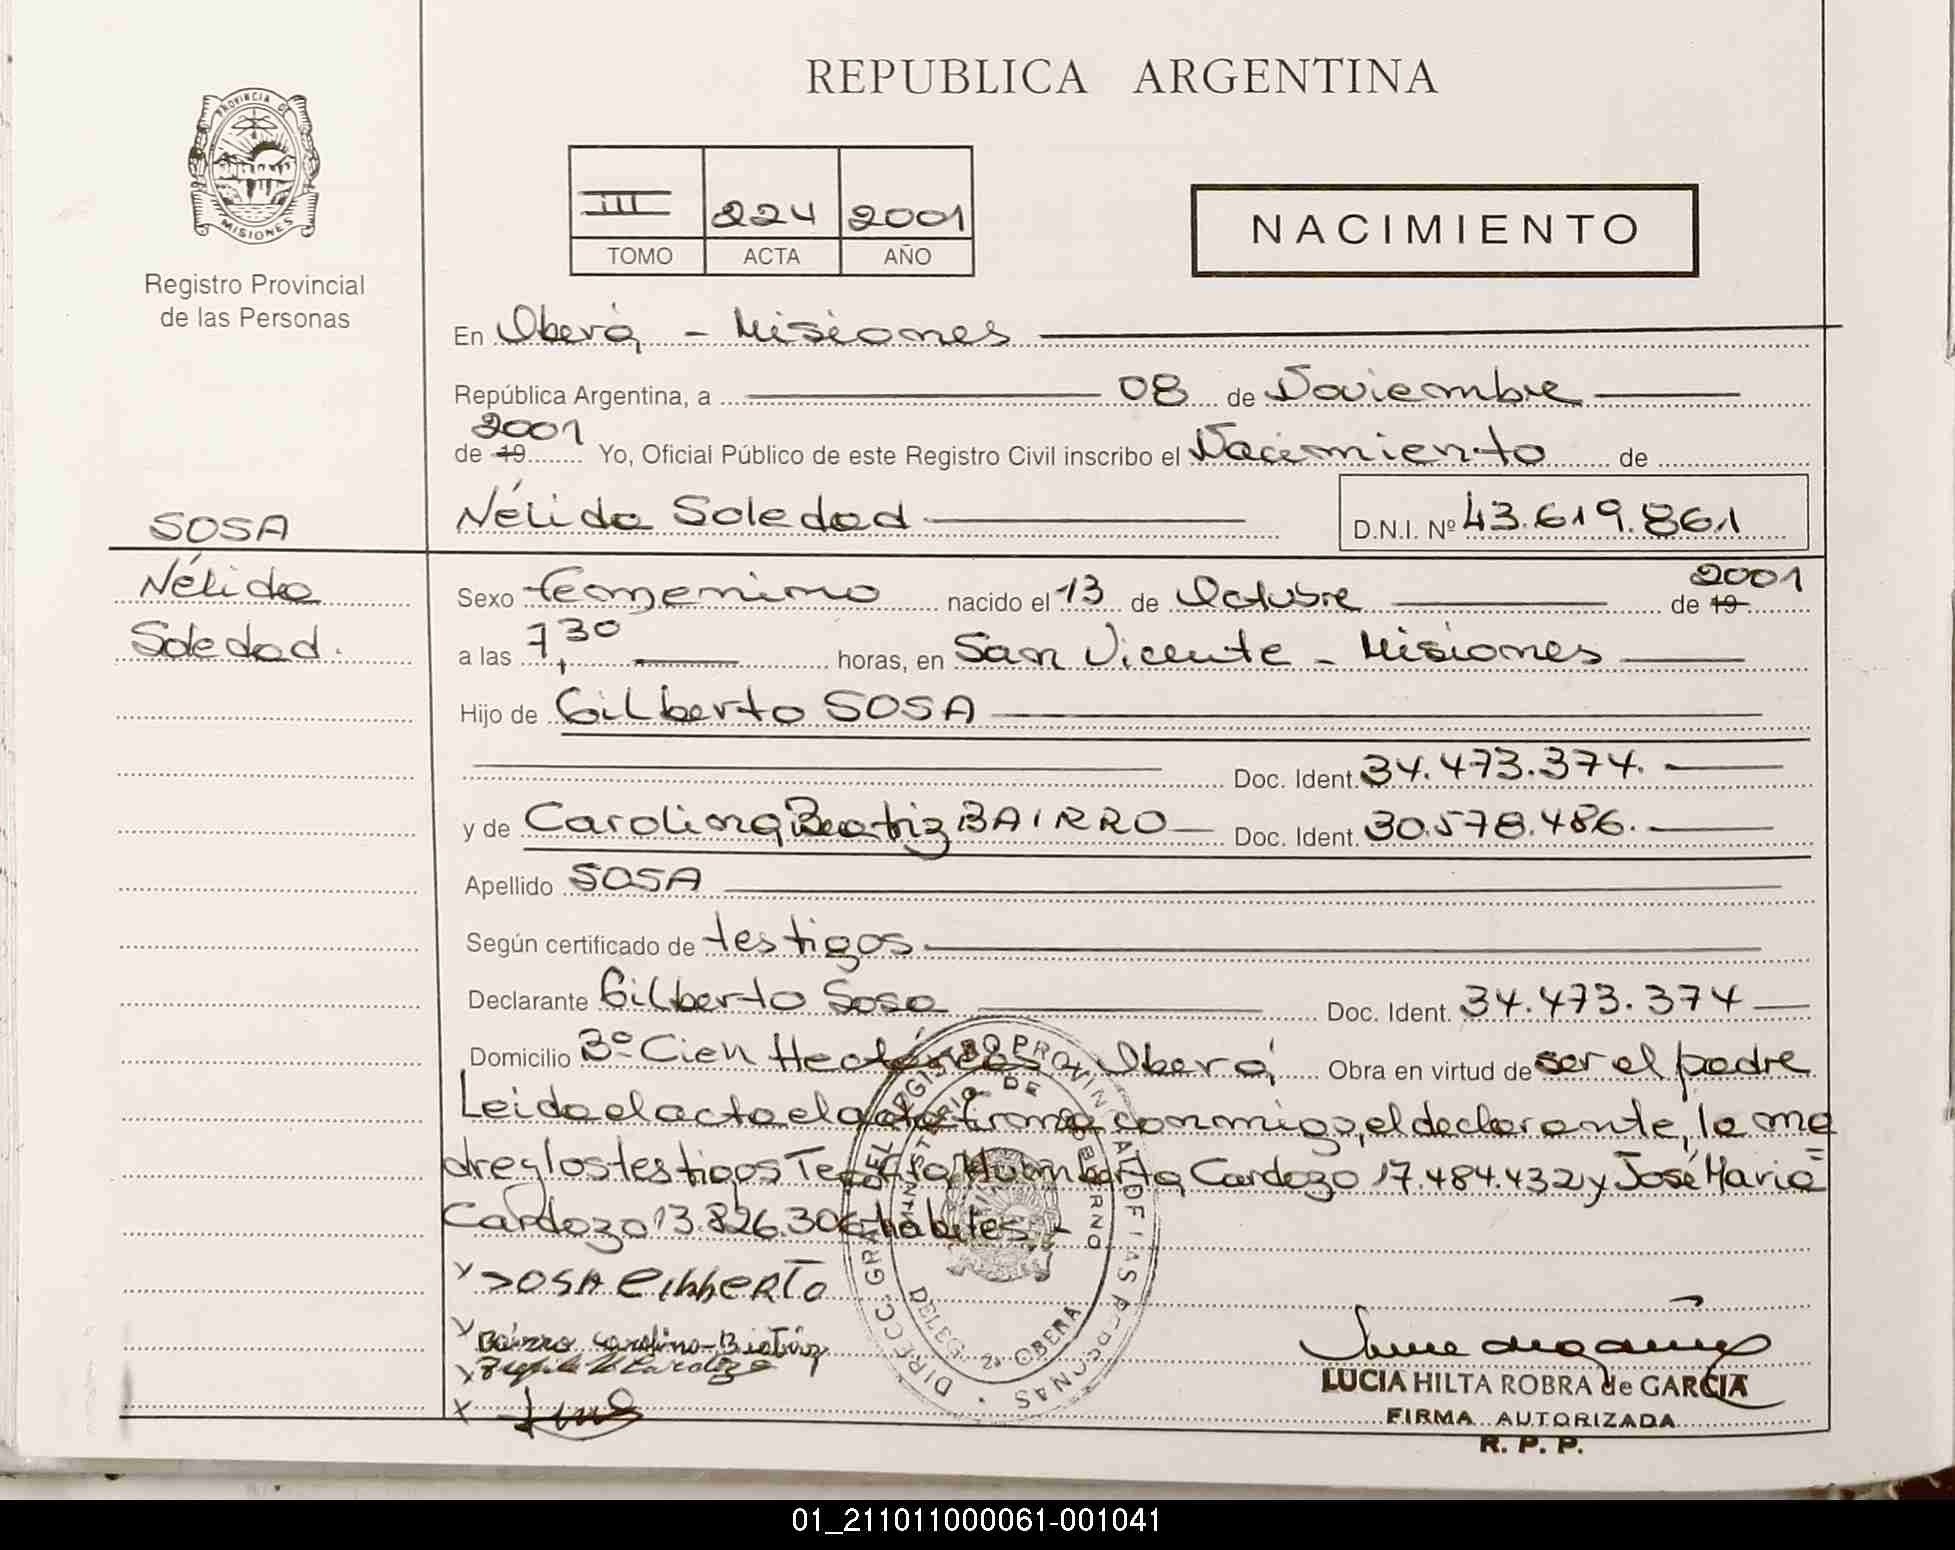 REPUBLICA ARGENTINA
PROVINCIA DE
MISIONES
Registro Provincial
de las Personas
III 224 2001
TOMO ACTA AÑO
NACIMIENTO
En Oberá - Misiones
República Argentina, a 08 de Noviembre
de 19 2001 Yo, Oficial Público de este Registro Civil inscribo el Nacimiento de
Nélida Soledad D.N.I. Nº 43.619.861
SOSA
Nélida
Soledad.
Sexo femenino nacido el 13 de Octubre de 19 2001
a las 7,30 horas, en San Vicente - Misiones
Hijo de Gilberto SOSA
Doc. Ident. 34.473.374.
y de Carolina Beatriz BAIRRO Doc. Ident. 30.578.486.
Apellido SOSA
Según certificado de testigos
Declarante Gilberto Sosa Doc. Ident. 34.473.374
Domicilio Bº Cien Hectáreas Oberá Obra en virtud de ser el padre
Leida el acta el acta firma conmigo, el declarante, la ma
dre y los testigos Humberto Cardozo 17.484.432 y José María
Cardozo 13.826.306 habiles.-
x SOSA GILBERTO
x Bairro Carolina-Biatriz
x Cardozo
x
DIRECC. GRAL DEL REGISTRO PROVINCIAL DE LAS PERSONAS
MINISTERIO DE GOBIERNO
DELEG. 2ª OBERA
LUCIA HILTA ROBRA de GARCIA
FIRMA AUTORIZADA
R. P. P.
01_211011000061-001041